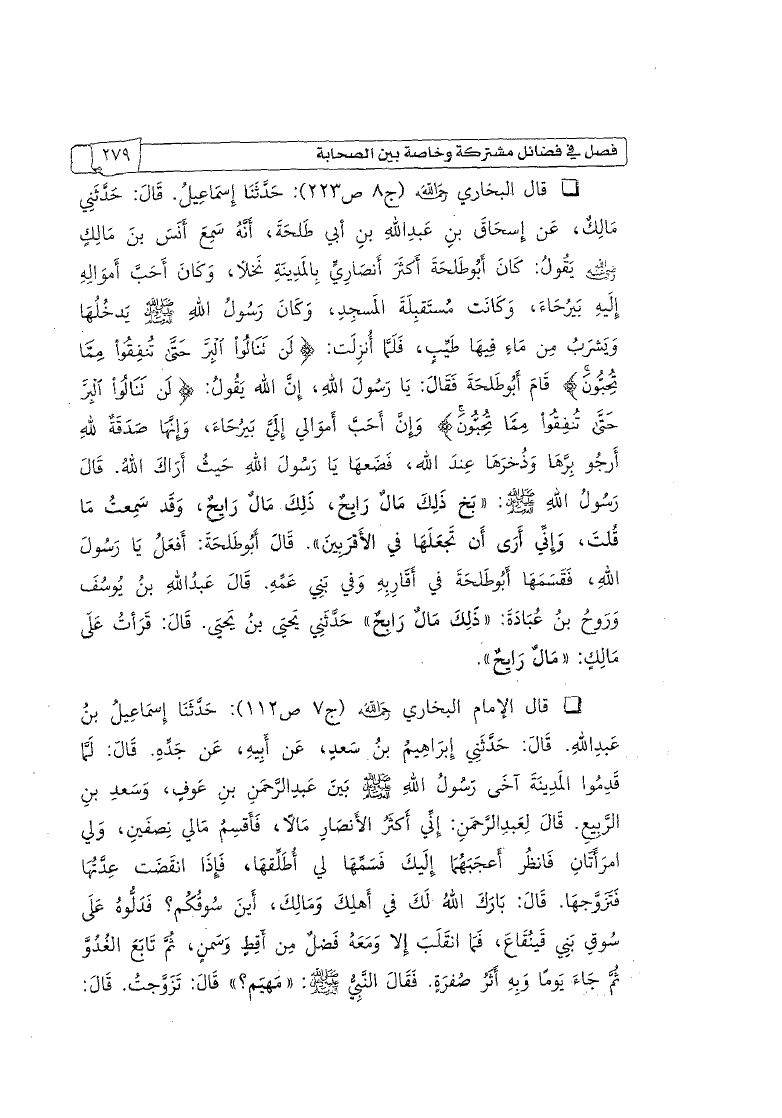 فصل في فضائل مشتركة وخاصة بين الصحابة ٢٧٩
❑ قال البخاري رحمه الله (ج٨ ص٢٢٣): حَدَّثَنَا إِسمَاعِيلُ. قَالَ: حَدَّثَنِي
مَالِكٌ، عَن إِسحَاقَ بنِ عَبدِاللهِ بنِ أبي طَلحَةَ، أَنَّهُ سَمِعَ أَنَسَ بنَ مَالِكٍ
رضي الله عنه يَقُولُ: كَانَ أَبُوطَلحَةَ أَكثَرَ أَنصَارِيٍّ بِالمَدِينَةِ نَخلًا، وَكَانَ أَحَبَّ أَموَالِهِ
إِلَيهِ بَيرُحَاءَ، وَكَانَت مُستَقبِلَةَ المَسجِدِ، وَكَانَ رَسُولُ اللهِ ﷺ يَدخُلُهَا
وَيَشرَبُ مِن مَاءٍ فِيهَا طَيِّبٍ، فَلَمَّا أُنزِلَت: ﴿لَن نَنَالُواْ ٱلْبِرَّ حَتَّىٰ تُنفِقُواْ مِمَّا
تُحِبُّونَ﴾ قَامَ أَبُوطَلحَةَ فَقَالَ: يَا رَسُولَ اللهِ، إِنَّ الله يَقُولُ: ﴿لَن نَنَالُواْ ٱلْبِرَّ
حَتَّىٰ تُنفِقُواْ مِمَّا تُحِبُّونَ﴾ وَإِنَّ أَحَبَّ أَموَالي إِلَيَّ بَيرُحَاءَ، وَإِنَّهَا صَدَقَةٌ للهِ
أَرجُو بِرَّهَا وَذُخرَهَا عِندَ الله، فَضَعهَا يَا رَسُولَ اللهِ حَيثُ أَرَاكَ اللهُ. قَالَ
رَسُولُ اللهِ ﷺ: «بَخ ذَلِكَ مَالٌ رَابِحٌ، ذَلِكَ مَالٌ رَابِحٌ، وَقَد سَمِعتُ مَا
قُلتَ، وَإِنِّي أَرَى أَن تَجعَلَهَا في الأَقرَبِينَ». قَالَ أَبُوطَلحَةَ: أَفعَلُ يَا رَسُولَ
اللهِ، فَقَسَمَهَا أَبُوطَلحَةَ في أَقَارِبِهِ وَفي بَنِي عَمِّهِ. قَالَ عَبدُاللهِ بنُ يُوسُفَ
وَرَوحُ بنُ عُبَادَةَ: «ذَلِكَ مَالٌ رَابِحٌ» حَدَّثَنِي يَحيَى بنُ يَحيَى. قَالَ: قَرَأتُ عَلَى
مَالِكٍ: «مَالٌ رَايِحٌ».
❑ قال الإمام البخاري رحمه الله (ج٧ ص١١٢): حَدَّثَنَا إِسمَاعِيلُ بنُ
عَبدِاللهِ. قَالَ: حَدَّثَنِي إِبرَاهِيمُ بنُ سَعدٍ، عَن أَبِيهِ، عَن جَدِّهِ. قَالَ: لَمَّا
قَدِمُوا المَدِينَةَ آخَى رَسُولُ اللهِ ﷺ بَينَ عَبدِالرَّحمَنِ بنِ عَوفٍ، وَسَعدِ بنِ
الرَّبِيعِ. قَالَ لِعَبدِالرَّحمَنِ: إِنِّي أَكثَرُ الأَنصَارِ مَالًا، فَأَقسِمُ مَالي نِصفَينِ، وَلي
امرَأَتَانِ فَانظُر أَعجَبَهُمَا إِلَيكَ فَسَمِّهَا لي أُطَلِّقهَا، فَإِذَا انقَضَت عِدَّتُهَا
فَتَزَوَّجهَا. قَالَ: بَارَكَ اللهُ لَكَ في أَهلِكَ وَمَالِكَ، أَينَ سُوقُكُم؟ فَدَلُّوهُ عَلَى
سُوقِ بَنِي قَينُقَاعَ، فَمَا انقَلَبَ إِلا وَمَعَهُ فَضلٌ مِن أَقِطٍ وَسَمنٍ، ثُمَّ تَابَعَ الغُدُوَّ
ثُمَّ جَاءَ يَومًا وَبِهِ أَثَرُ صُفرَةٍ. فَقَالَ النَّبِيُّ ﷺ: «مَهيَم؟» قَالَ: تَزَوَّجتُ. قَالَ: